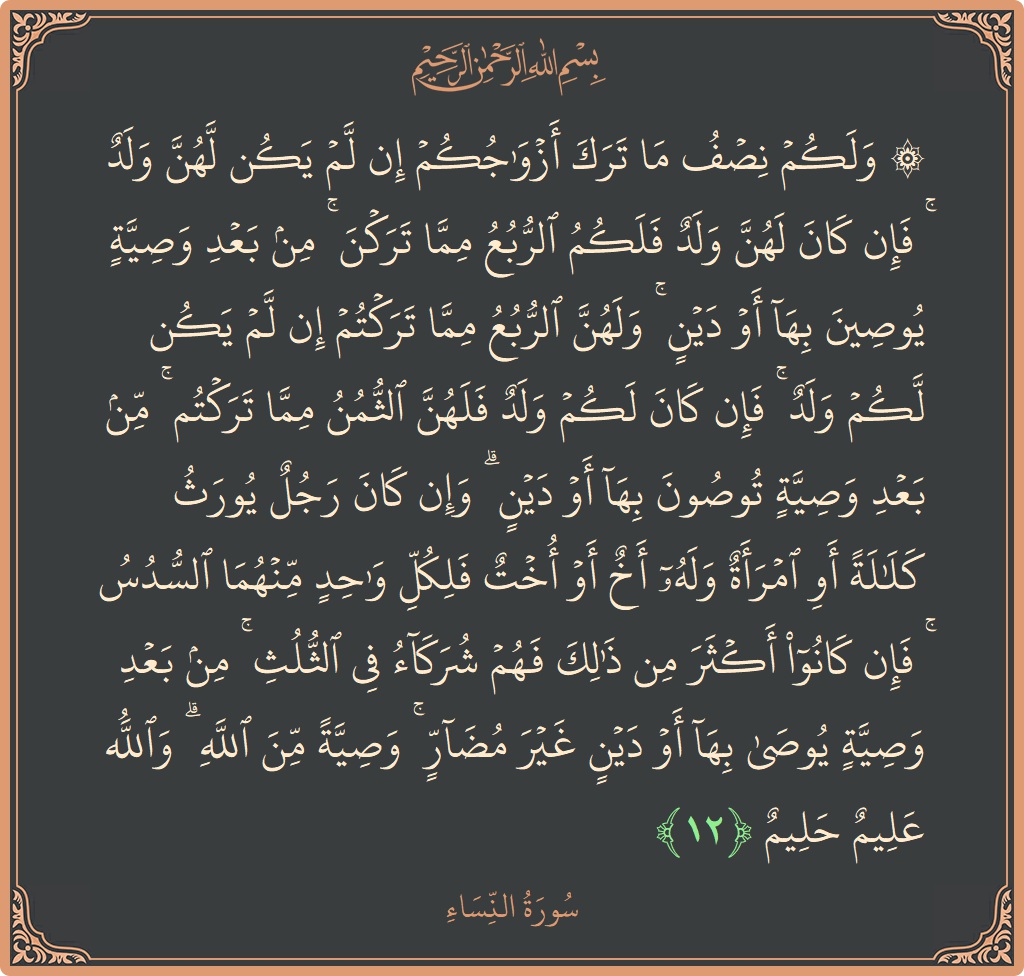 بِسْمِ اللهِ الرَّحْمٰنِ الرَّحِيْمِ
۞ وَلَكُمۡ نِصۡفُ مَا تَرَكَ أَزۡوَٰجُكُمۡ إِن لَّمۡ يَكُن لَّهُنَّ وَلَدٞ
ۚ فَإِن كَانَ لَهُنَّ وَلَدٞ فَلَكُمُ ٱلرُّبُعُ مِمَّا تَرَكۡنَ ۚ مِنۢ بَعۡدِ وَصِيَّةٖ
يُوصِينَ بِهَآ أَوۡ دَيۡنٖ ۚ وَلَهُنَّ ٱلرُّبُعُ مِمَّا تَرَكۡتُمۡ إِن لَّمۡ يَكُن
لَّكُمۡ وَلَدٞ ۚ فَإِن كَانَ لَكُمۡ وَلَدٞ فَلَهُنَّ ٱلثُّمُنُ مِمَّا تَرَكۡتُم ۚ مِّنۢ
بَعۡدِ وَصِيَّةٖ تُوصُونَ بِهَآ أَوۡ دَيۡنٖ ۗ وَإِن كَانَ رَجُلٞ يُورَثُ
كَلَٰلَةً أَوِ ٱمۡرَأَةٞ وَلَهُۥٓ أَخٌ أَوۡ أُخۡتٞ فَلِكُلِّ وَٰحِدٖ مِّنۡهُمَا ٱلسُّدُسُ
ۚ فَإِن كَانُوٓاْ أَكۡثَرَ مِن ذَٰلِكَ فَهُمۡ شُرَكَآءُ فِي ٱلثُّلُثِ ۚ مِنۢ بَعۡدِ
وَصِيَّةٖ يُوصَىٰ بِهَآ أَوۡ دَيۡنٍ غَيۡرَ مُضَآرّٖ ۚ وَصِيَّةٗ مِّنَ ٱللَّهِ ۗ وَٱللَّهُ
عَلِيمٌ حَلِيمٞ ﴿١٢﴾
سُورَةُ النِّسَاءِ